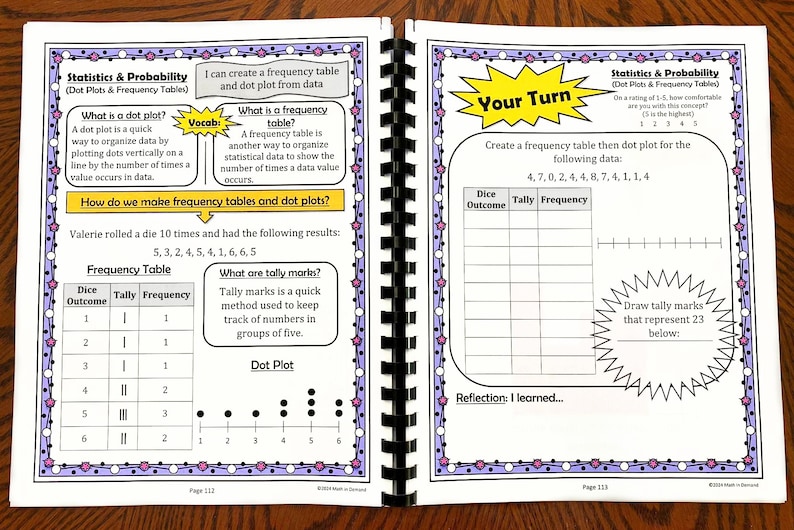 Statistics & Probability
(Dot Plots & Frequency Tables)
I can create a frequency table
and dot plot from data
What is a dot plot?
A dot plot is a quick
way to organize data by
plotting dots vertically on a
line by the number of times a
value occurs in data.
Vocab:
What is a frequency
table?
A frequency table is
another way to organize
statistical data to show the
number of times a data value
occurs.
How do we make frequency tables and dot plots?
Valerie rolled a die 10 times and had the following results:
5, 3, 2, 4, 5, 4, 1, 6, 6, 5
Frequency Table
Dice Outcome Tally Frequency
1 | 1
2 | 1
3 | 1
4 || 2
5 ||| 3
6 || 2
What are tally marks?
Tally marks is a quick
method used to keep
track of numbers in
groups of five.
Dot Plot
1 2 3 4 5 6
Page 112
©2024 Math in Demand
Your Turn
Statistics & Probability
(Dot Plots & Frequency Tables)
On a rating of 1-5, how comfortable
are you with this concept?
(5 is the highest)
1 2 3 4 5
Create a frequency table then dot plot for the
following data:
4, 7, 0, 2, 4, 4, 8, 7, 4, 1, 1, 4
Dice Outcome Tally Frequency
Draw tally marks
that represent 23
below:
Reflection: I learned...
Page 113
©2024 Math in Demand